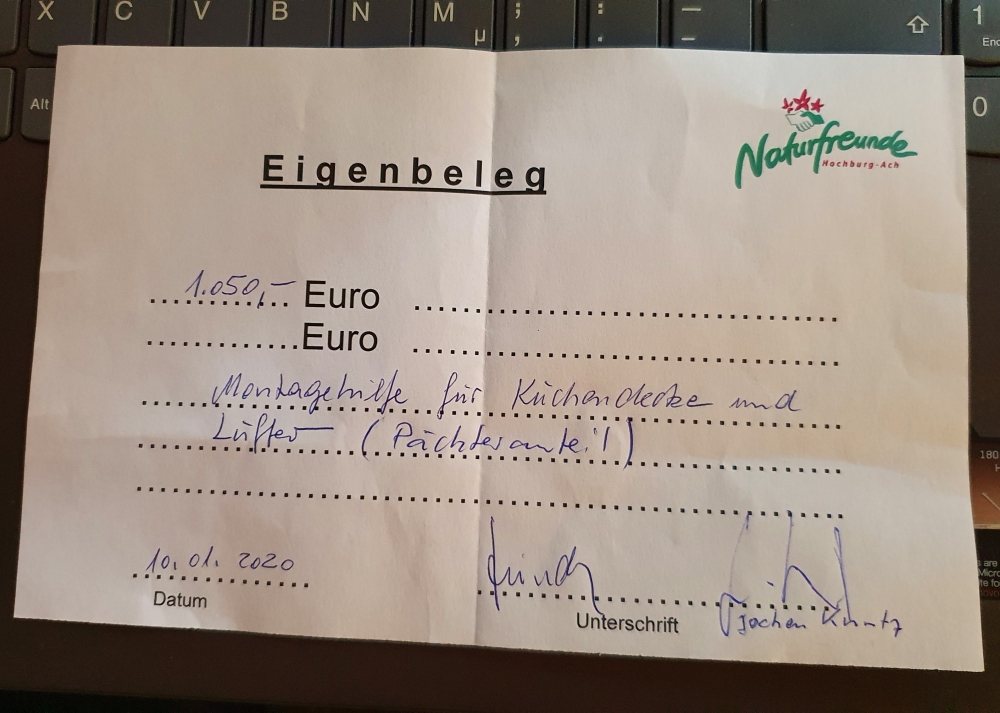 X C V B N M ; : _
µ , . -
1
End
Alt
0
Naturfreunde
Hochburg-Ach
Eigenbeleg
1.050,- Euro
Euro
Montagehilfe für Küchendecke und
Lüfter (Pächteranteil)
10.01.2020
Datum
Unterschrift
Jochen
180